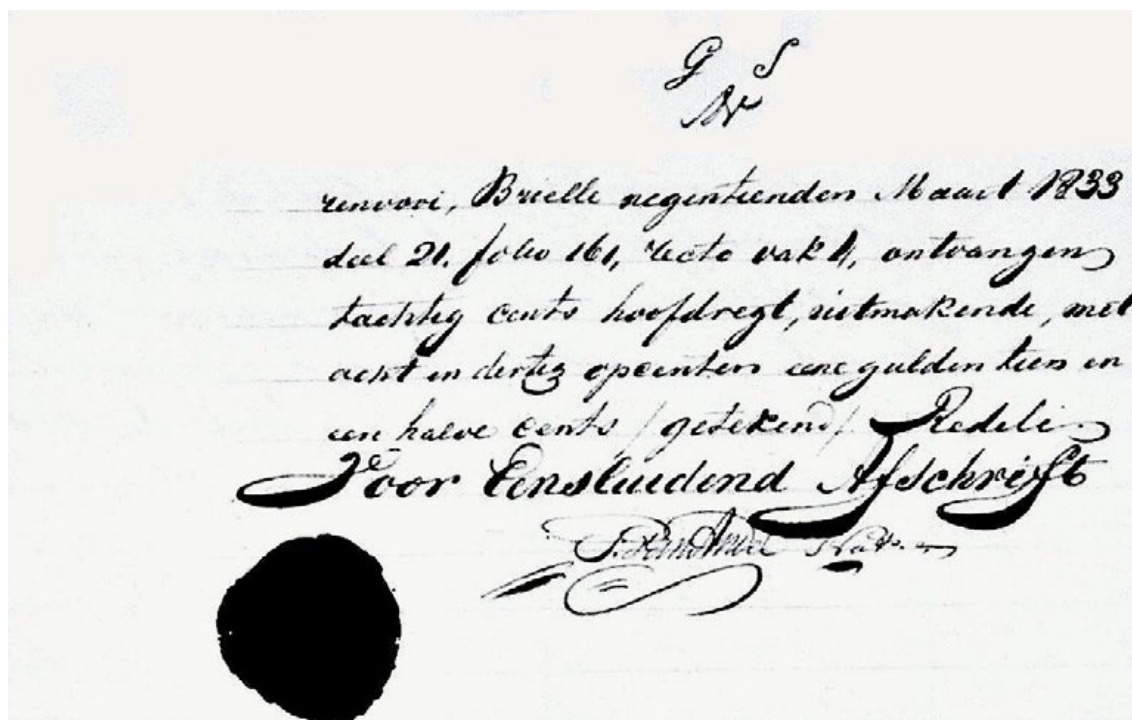 G S
W
renvooi, Brielle negentienden Maart 1833
deel 21. folio 161, recto vak 4, ontvangen
tachtig cents hoofdregt, uitmakende, met
acht en dertig opcenten eene gulden tien en
een halve cents /getekend/ Redeli
Voor Eensluidend Afschrift
Not.